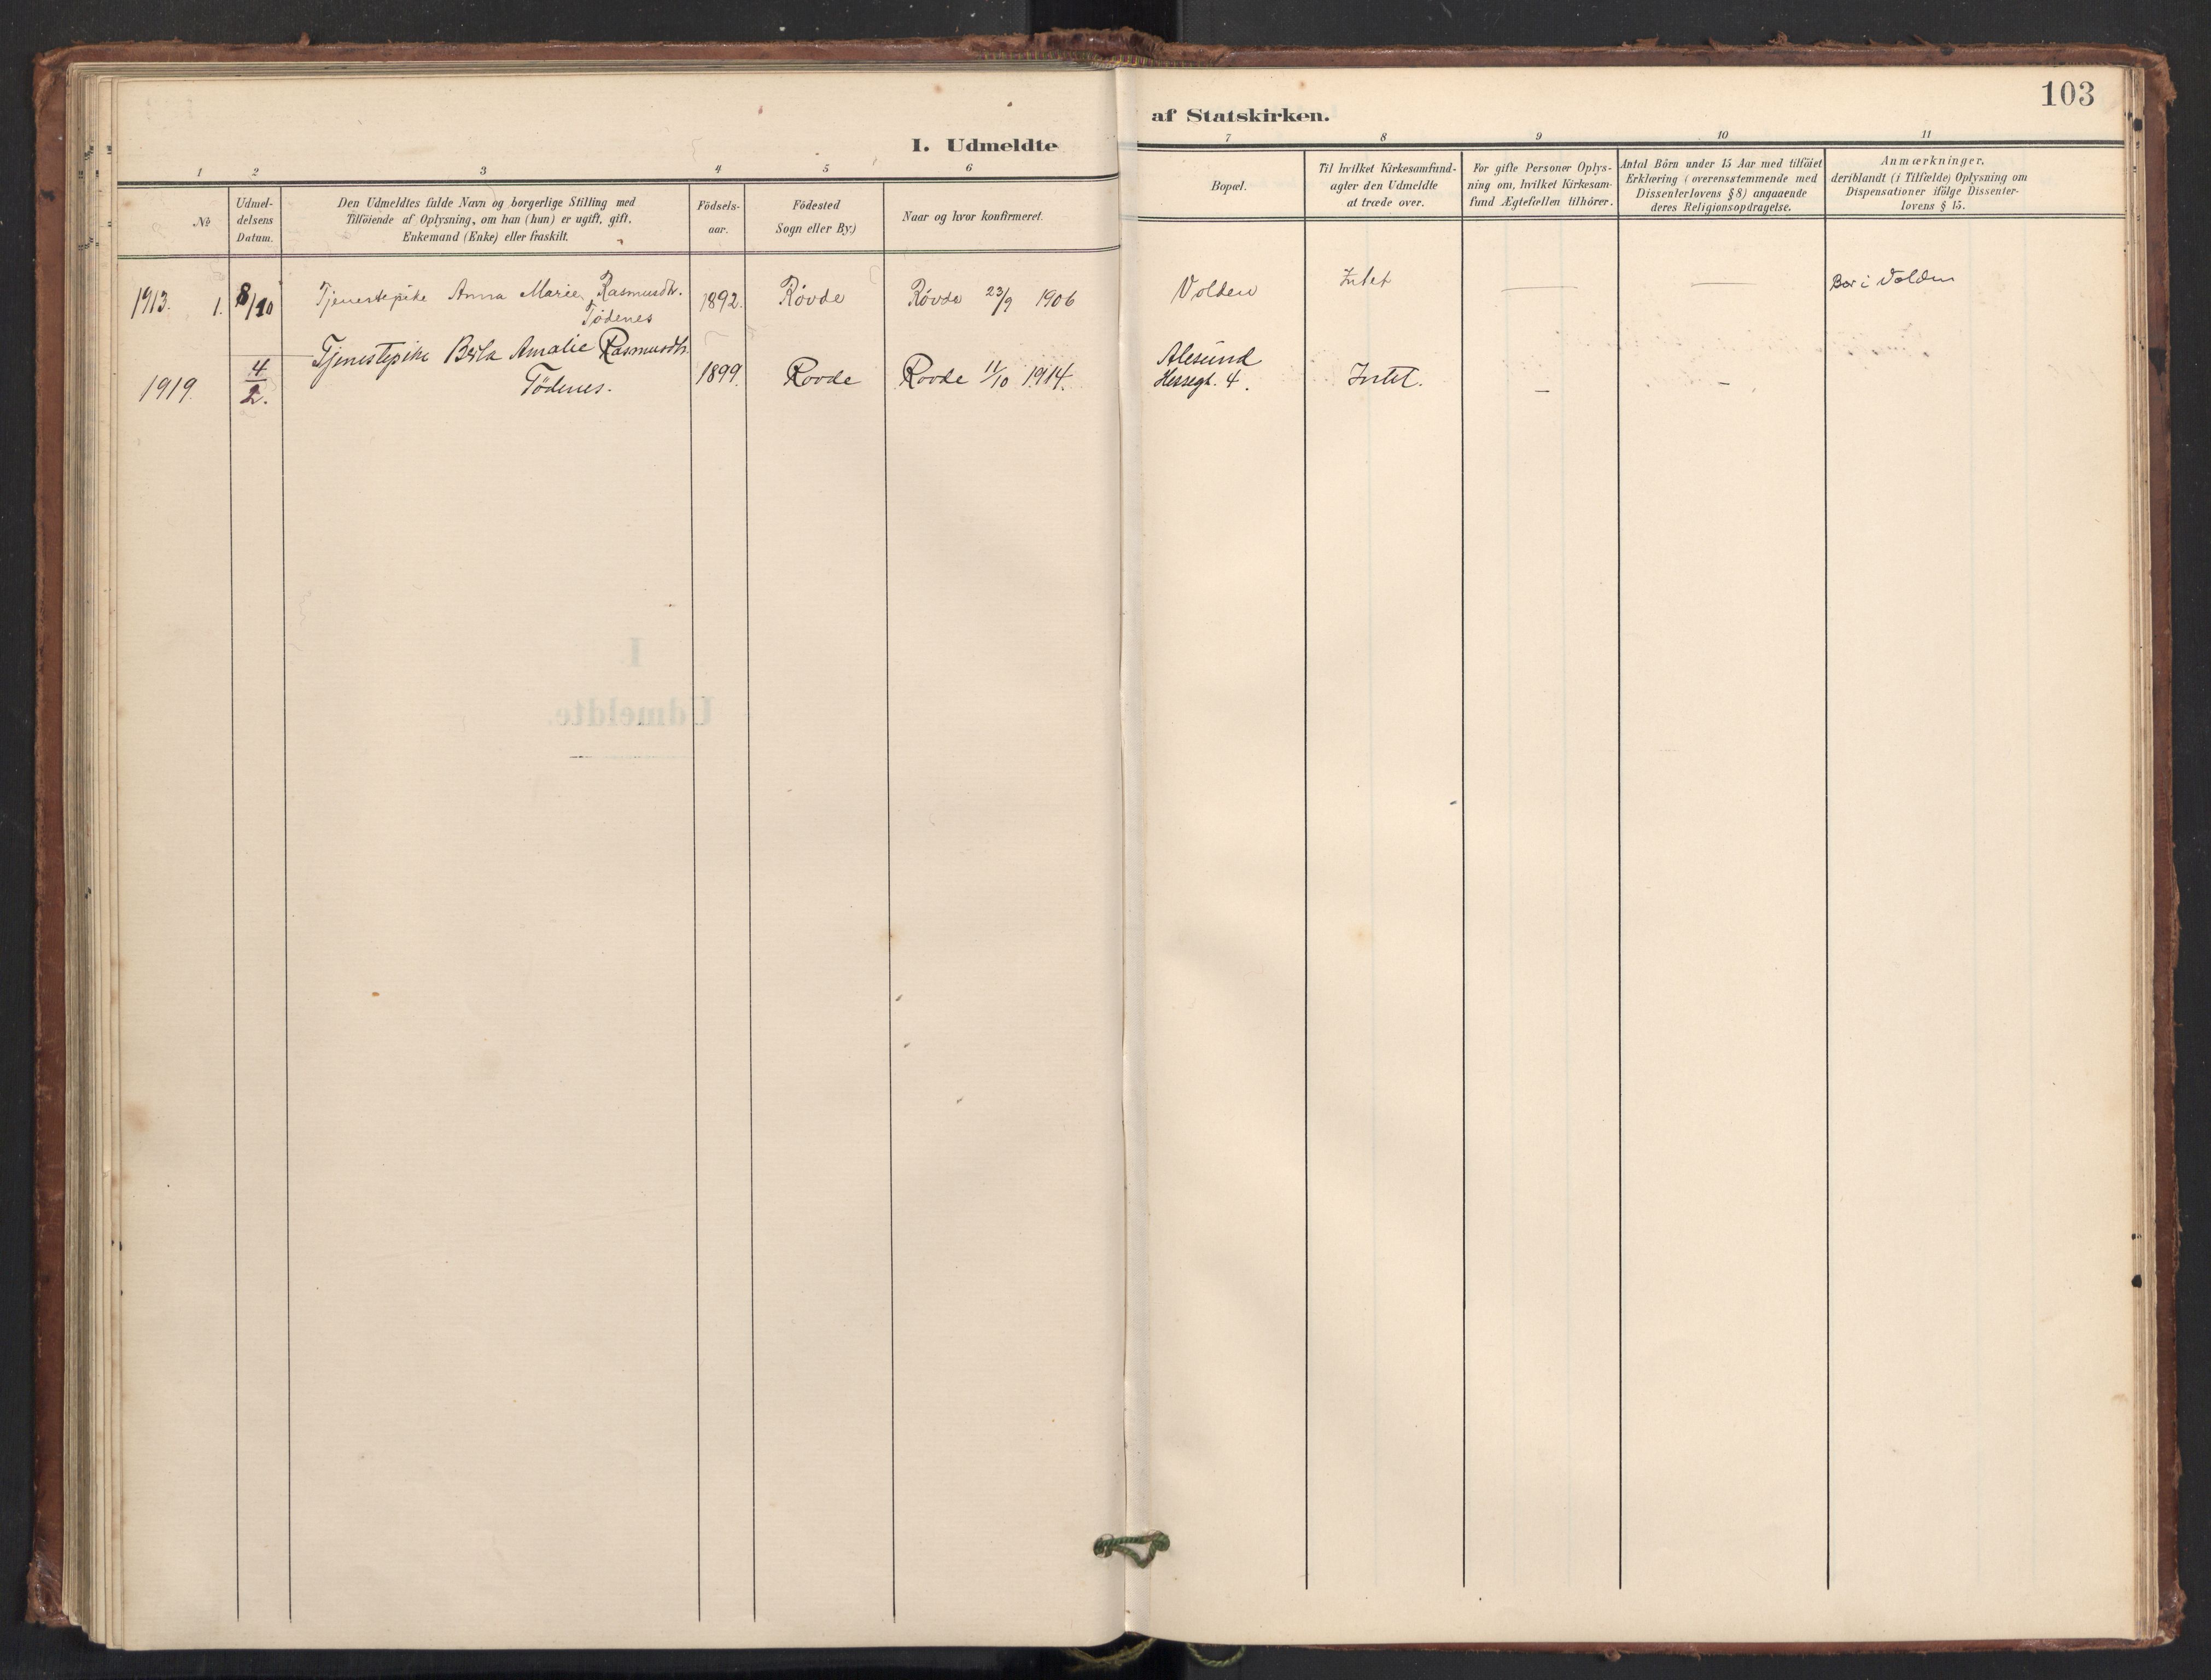 103
I. Udmeldte af Statskirken.
1 2 3 4 5 6 7 8 9 10 11
№
Udmel-
delsens
Datum.
Den Udmeldtes fulde Navn og borgerlige Stilling med
Tilföiende af Oplysning, om han (hun) er ugift, gift,
Enkemand (Enke) eller fraskilt.
Födsels-
aar.
Födested
Sogn eller By.)
Naar og hvor konfirmeret.
Bopæl.
Til hvilket Kirkesamfund
agter den Udmeldte
at træde over.
For gifte Personer Oplys-
ning om, hvilket Kirkesam-
fund Ægtefællen tilhörer.
Antal Börn under 15 Aar med tilföiet
Erklæring (overensstemmende med
Dissenterlovens § 8) angaaende
deres Religionsopdragelse.
Anmærkninger,
deriblandt (i Tilfælde) Oplysning om
Dispensationer ifölge Dissenter-
lovens § 15.
1913. 1. 8/10 Tjenestepike Anna Marie Rasmusdtr. 1892. Røvde Røvde 23/9 1906 Volden Intet — — Bor i Volden
Tødenes
Tjenestepike Amalie Rasmusdtr.
Tödenes.
1919. 4/2. 1899. Rovde Rovde 11/10 1914. Alesund
Hessegt. 4. Intet. – –
I
Udmeldte.